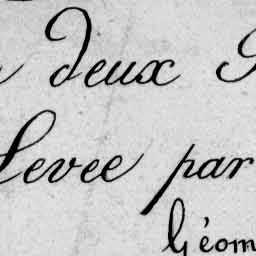 deux
Levee par
Géom